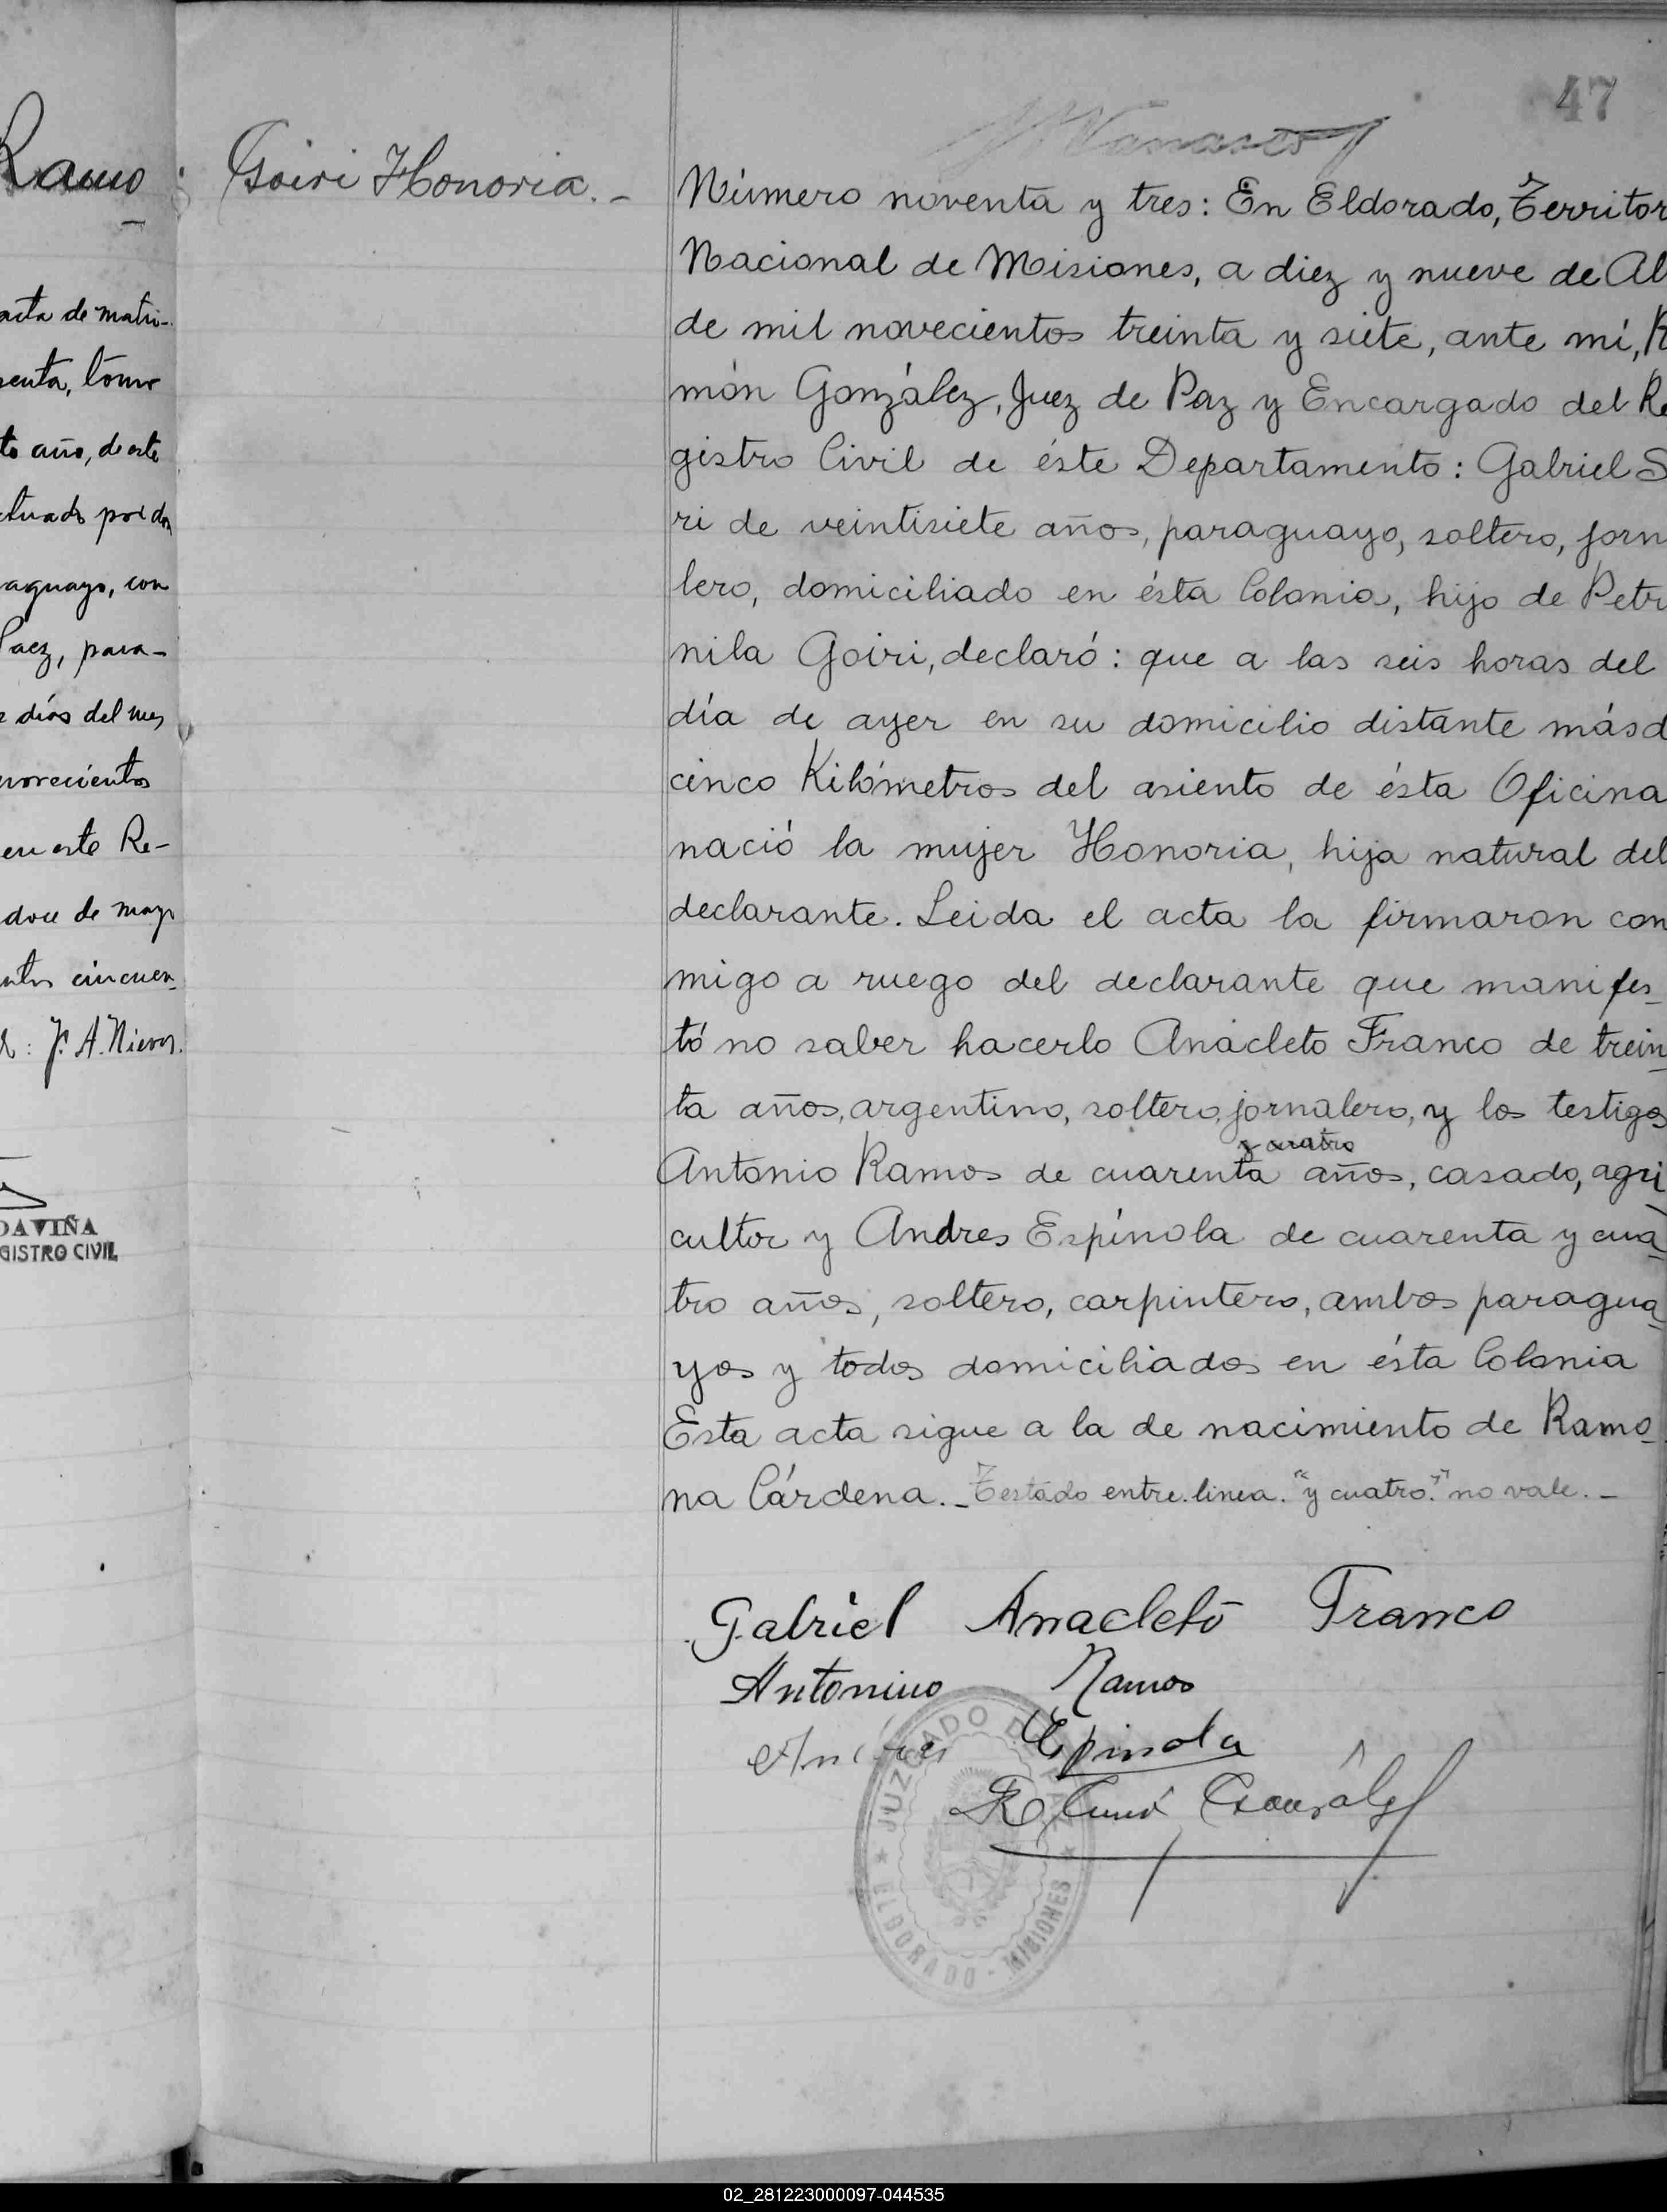 47
Ramo
Goiri Honoria.-
Número noventa y tres: En Eldorado, Territor
Nacional de Misiones, a diez y nueve de Ab
de mil novecientos treinta y siete, ante mí, R
món González, Juez de Paz y Encargado del Re
gistro Civil de éste Departamento: Gabriel
ri de veintisiete años, paraguayo, soltero, jorn
lero, domiciliado en ésta Colonia, hijo de Petr
nila Goiri, declaró: que a las seis horas del
día de ayer en su domicilio distante más d
cinco Kilómetros del asiento de ésta Oficina
nació la mujer Honoria, hija natural del
declarante. Leida el acta la firmaron con
migo a ruego del declarante que manifes-
tó no saber hacerlo Anacleto Franco de trein-
ta años, argentino, soltero, jornalero, y los testigos
y cuatro
Antonio Ramos de cuarenta años, casado, agri-
cultor y Andres Espínola de cuarenta y cua-
tro años, soltero, carpintero, ambos paragua-
yos y todos domiciliados en ésta Colonia
Esta acta sigue a la de nacimiento de Ramo-
na Cárdena.- Testado entre linea. "y cuatro." no vale.-
Gabriel Anacleto Franco
Antonino Ramos
Andres Epinola
González
JUZGADO DE PAZ
ELDORADO - MISIONES
acta de matri-
senta, tomo
to año, de este
ctuado por don
raguayo, con
Paez, para-
días del mes
novecientos
en este Re-
doce de mayo
entos cincuen-
: J. A. Nieves.
DAVIÑA
GISTRO CIVIL
02_281223000097-044535